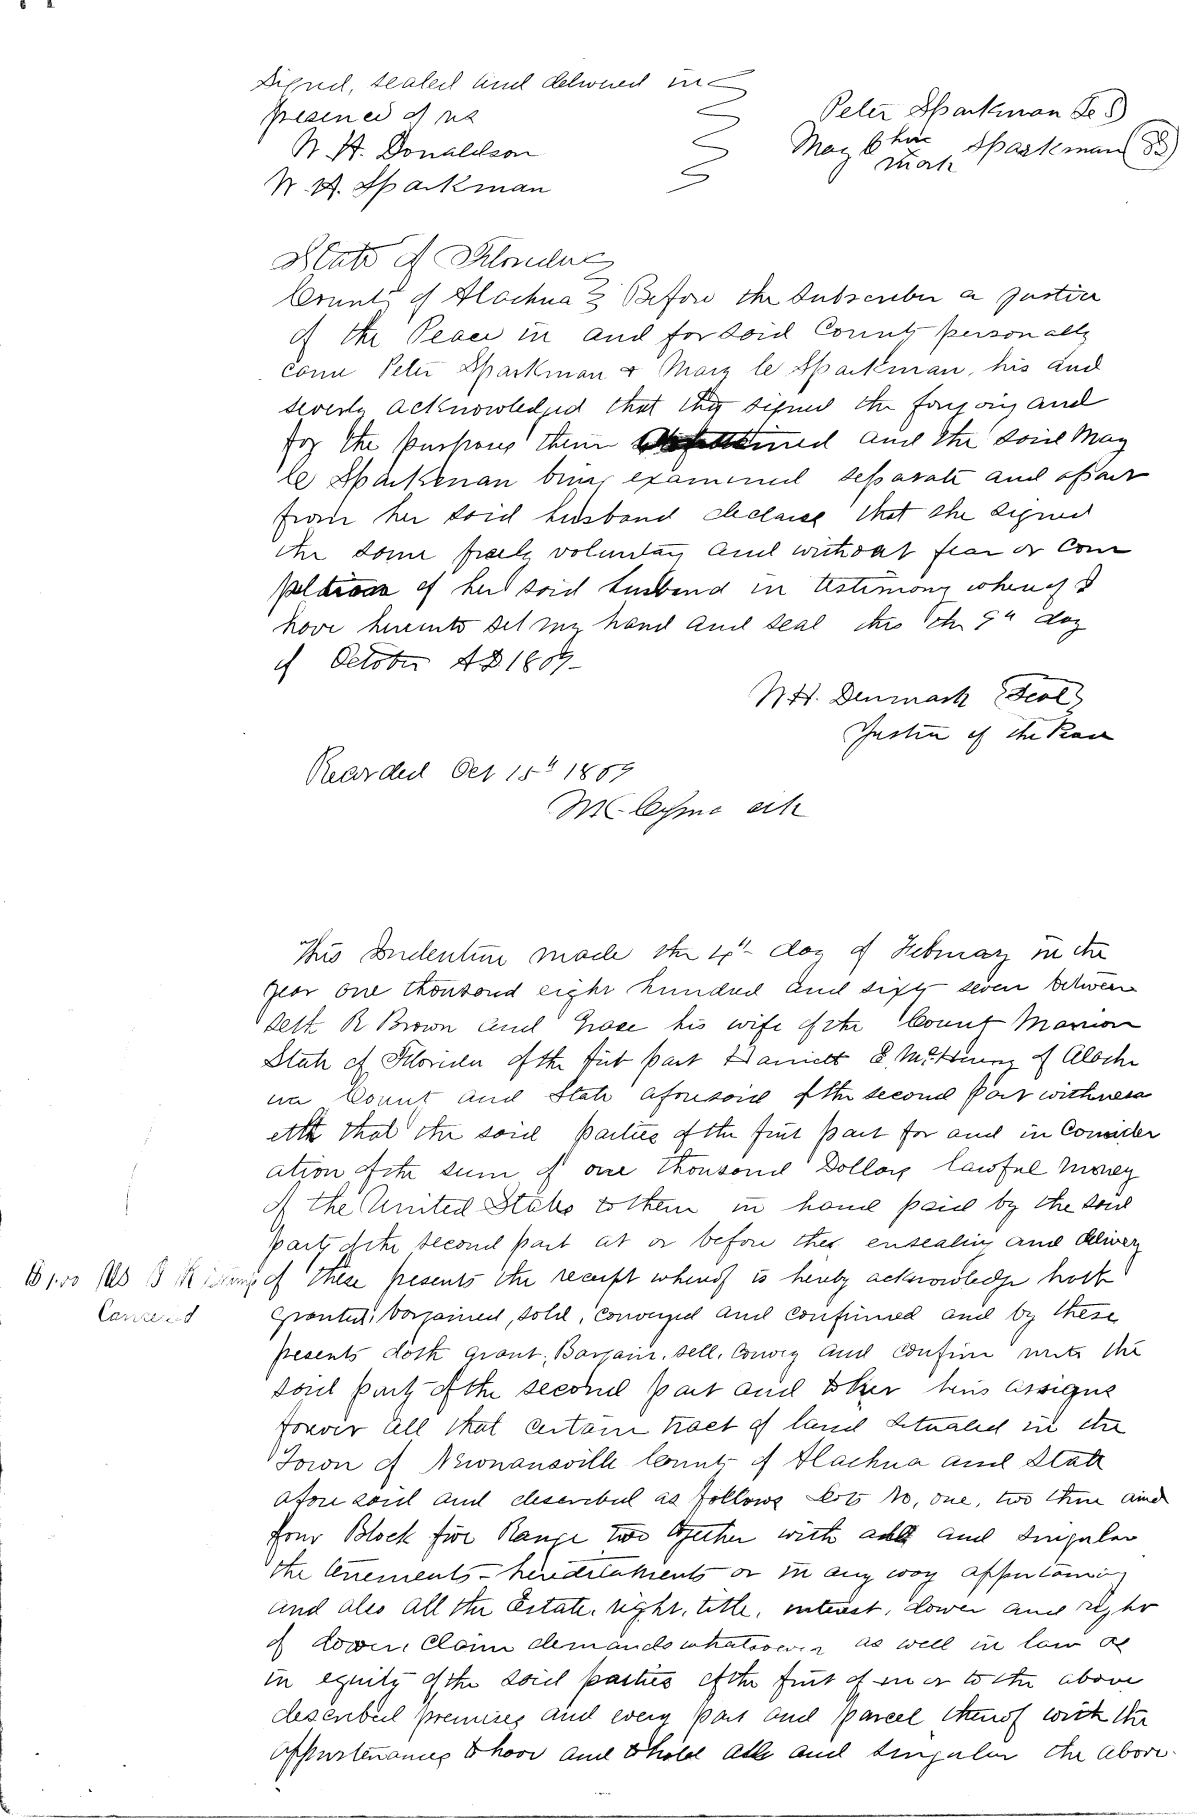 Signed, sealed and delivered in
presence of us
W. H. Donaldson
W. A. Sparkman
Peter Sparkman
May C his mark Sparkman
State of Florida
County of Alachua } Before the subscriber a justice
of the Peace in and for said County personally
came Peter Sparkman & Mary C Sparkman, his and
severly acknowledged that they signed the forgoing and
for the purposes therein contained and the said May
C Sparkman being examined separate and apart
from her said husband declares that she signed
the same freely voluntary and without fear or com
pultion of her said husband in testimony whereof I
have hereunto set my hand and seal this the 9th day
of October AD 1869
W H. Denmark (Seal)
Justice of the Peace
Recorded Oct 15th 1869
clk
This Indenture made the 4th day of February in the
year one thousand eight hundred and sixty seven between
Seth R Brown and Grace his wife of the County Marrion
State of Florida of the first part Harriett E. McHenry of Alach
ua County and State aforesaid of the second part withness
eth that the said parties of the first part for and in Consider
ation of the sum of one thousand Dollars lawful money
of the United States to them in hand paid by the said
party of the second part at or before the ensealing and delivery
$1.00 US I R Stamp
Canceled
of these presents the receipt whereof is hereby acknowledge hath
granted, bargained, sold, conveyed and confirmed and by these
presents doth grant, Bargain, sell, convey and confirm unto the
said party of the second part and to her heirs assigns
forever all that certain tract of land situated in the
Town of Newnansville County of Alachua and State
afore said and described as follows Lots No, one, two three and
four Block five Range two together with all and singular
the tenements - hereditaments or in any way appertaining
and also all the Estate, right, title, interest, dower and right
of dower, claim demands whatsoever as well in law as
in equity of the said parties of the first of in or to the above
described premises and every part and parcel thereof with the
appurtenances to have and to hold all and singular the above